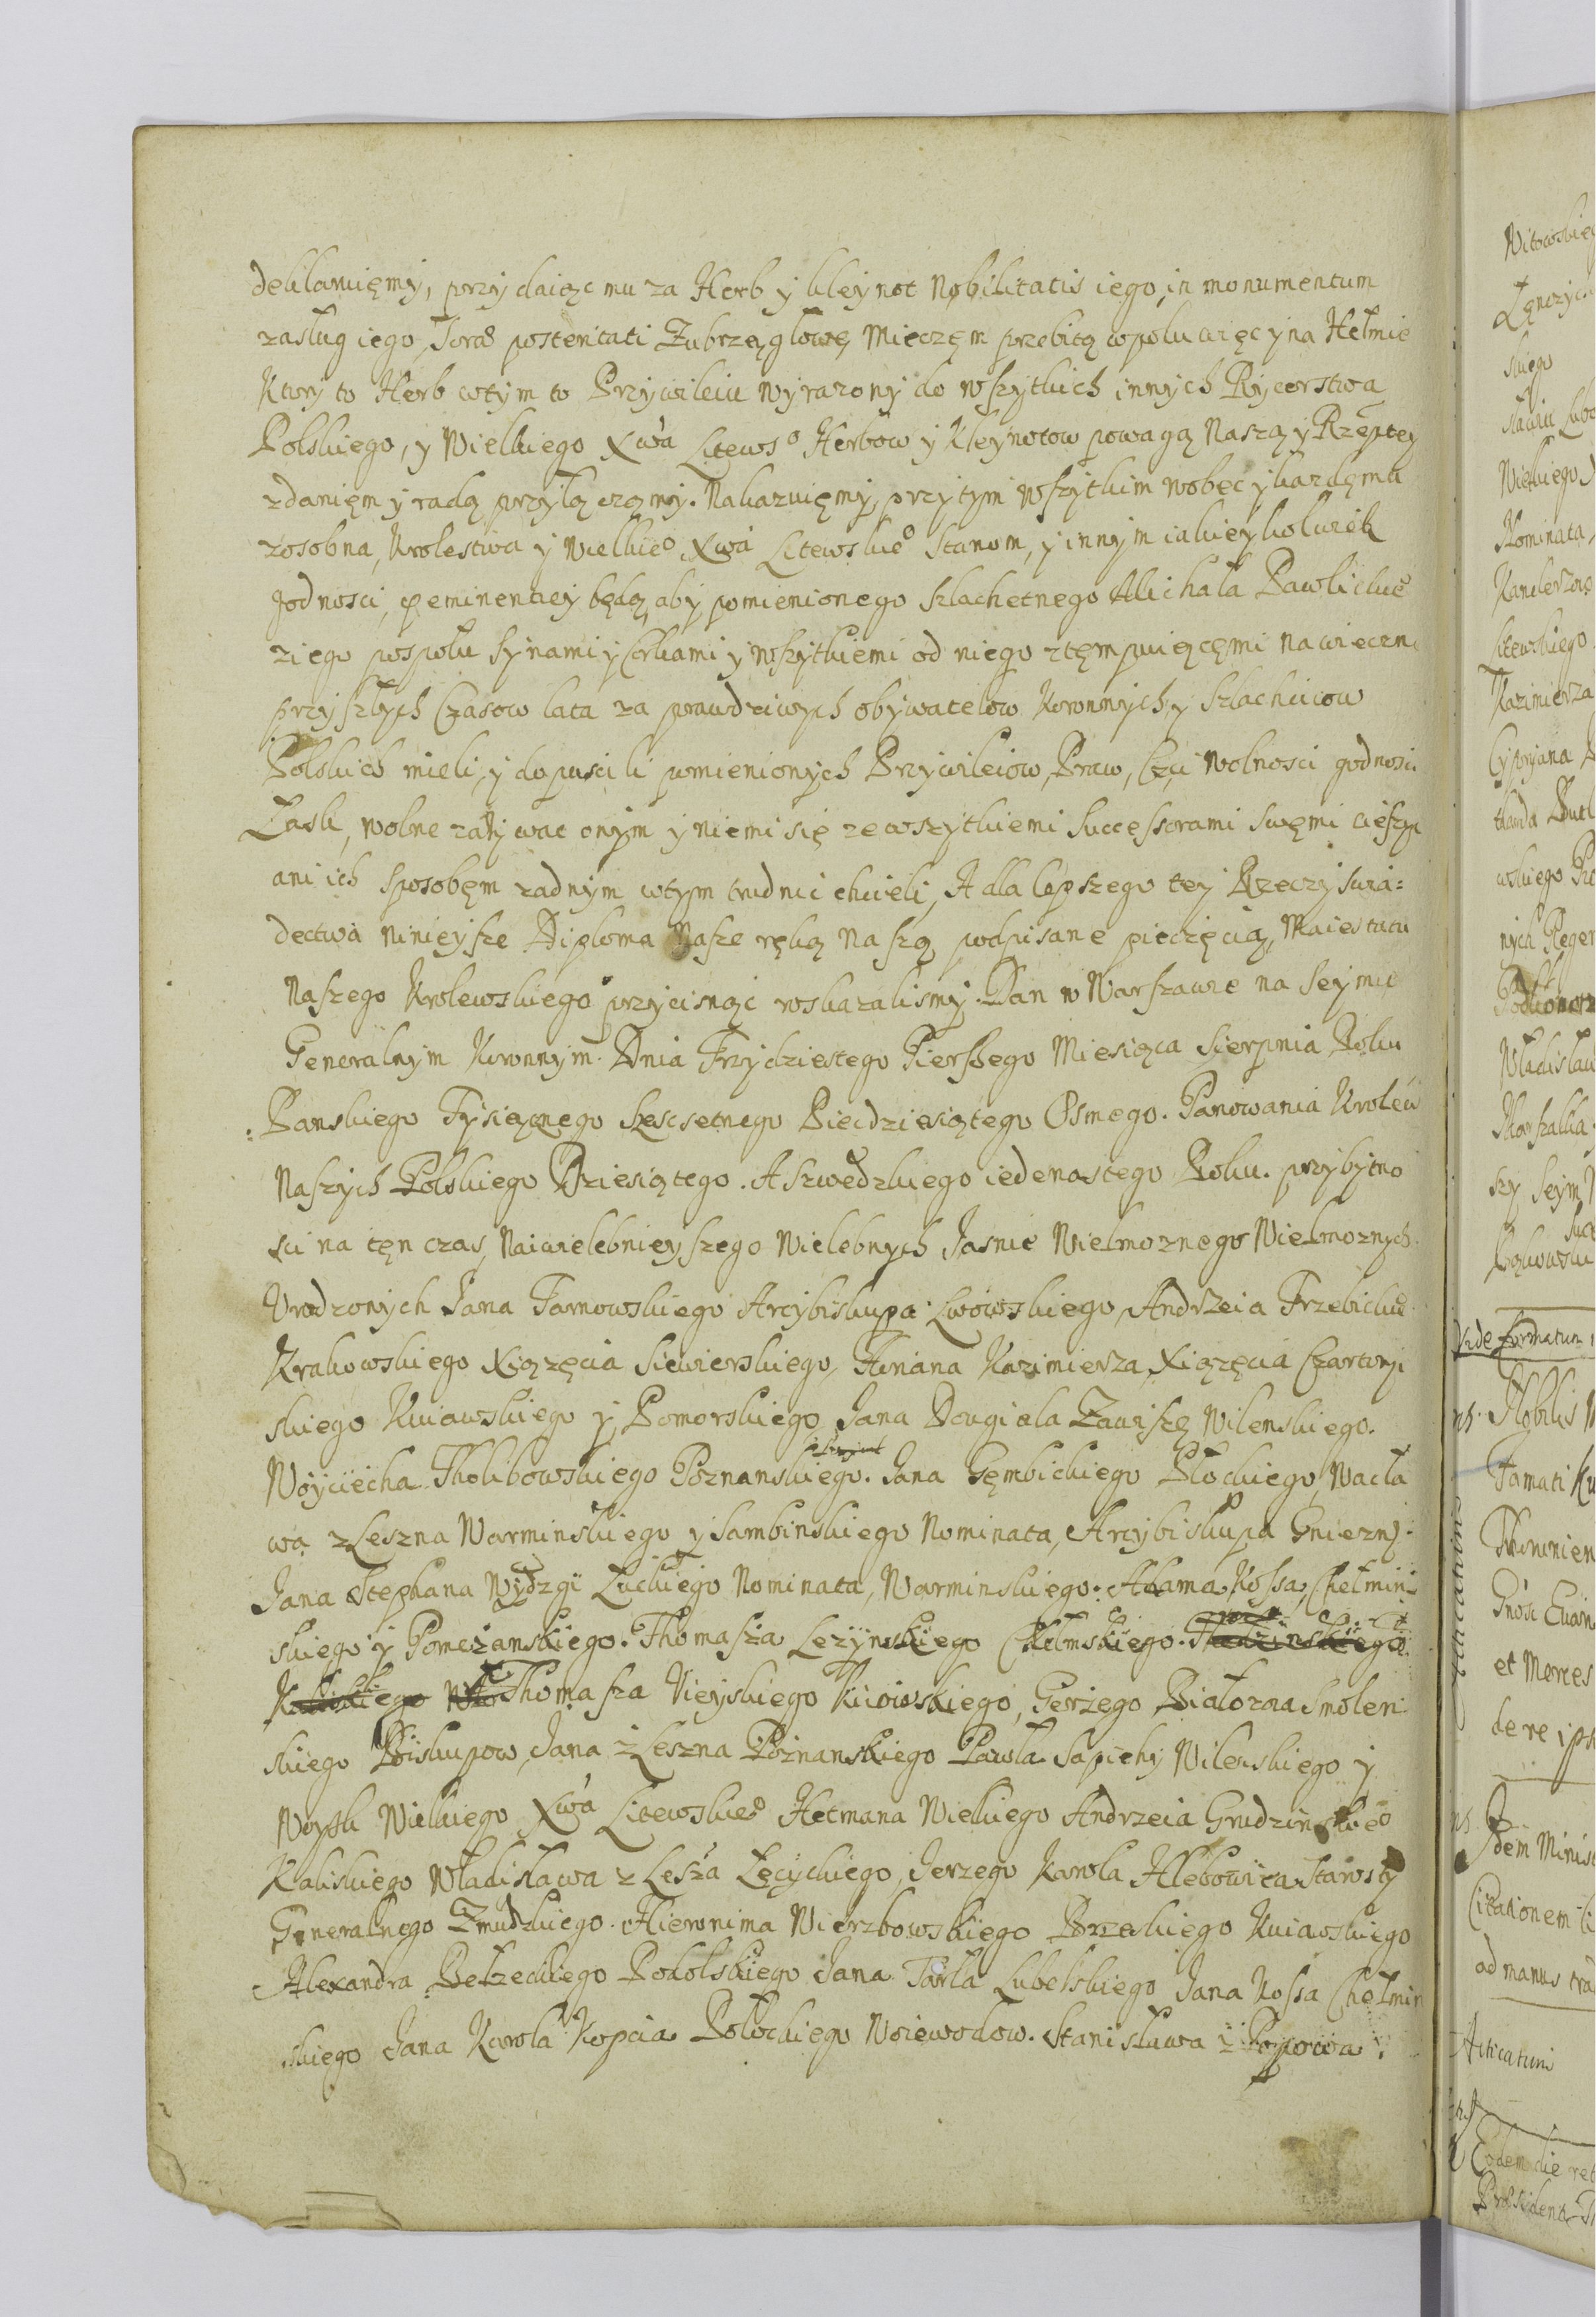 deklaruięmy, przydaiąc mu za Herb y kleynot Nobilitatis iego, in monumentum
zasług iego, Suae posteritati Zubrzą głowę Mieczęm przebitą wpolu więc y na Hełmie
Ktory to Herb wtym to Przywileiu wyrazony do wszytkich innych Rycerstwa
Polskiego, y Wielkiego Xwa Litewsº Herbow y Kleynotow powagą Naszą y Rzeptey
zdanięm y radą przyłączamy. Nakazuięmy przytym wszytkim wobec y kazdęmu
zosobna, Krolestwa y Wielkieº Xwa Litewskieº Stanom, y innym iakieykolwiek
godnosci, przeminentiey będą, aby pomienionego Szlachetnego Michała Pawlickieº
ziego pospołu Synami y Corkami y wszytkiemi od niego ztęmpuiącęmi na wieczne
przyszłych Czasow lata za prawdziwych obywatelow Koronnych y Szlachcicow
Polskich mieli, y dopuscili pomienionych Przywileiow, Praw, Czci Wolnosci godnosci
Łask, wolne zażywac onym y niemi się zewszytkiemi Successorami Swęmi cieszyc
ani ich Sposobęm zadnym wtym trudnic chcieli, A dla lepszego tey Rzeczy Swia=
dectwa Ninieysze Diploma Nasze ręką Naszą podpisane pieczęcią, Maiestatu
Naszego Krolewskiego przycisnąc roskazalismy. Dan w Warszawie na Seymie
Generalnym Koronnym. Dnia Trzydziestego Pierszego Miesiąca Sierpnia Roku
Panskiego Tysiącnego Szescsetnego Piecdziesiątego Osmego. Panowania Krolew
Naszych Polskiego Dziesiątego. A Szwedzkiego iedenastego Roku. przybytno
sci na tęn czas, Naiwielebnieyszego Wielebnych Jasnie Wielmoznego Wielmoznych
Urodzonych Jana Tarnowskiego Arcybiskupa Lwowskiego, Andrzeia Trzebickieº
Krakowskiego Xiążęcia Siewierskiego, Floriana Kazimierza Xiążęcia Czartory
skiego Kuiawskiego y Pomorskiego Jana Dougiala Zawiszę Wilenskiego.
Woyciecha Tholibowskiego Poznanskiego. Jana Gęmbickiego Płockiego, Wacła
wa z Leszna Warminskiego y Sambinskiego Nominata, Arcybiskupa Gniezn:
Jana Stephana Wydzgi Łuckiego Nominata, Warminskiego. Adama Kossa, Chełmin
skiego y Pomezanskiego. Thomasza Lezynskiego Chełmskiego.
Kaliskiego Thomasza Uieyskiego Kiiowskiego, Gerzego Białozora Smolen
skiego Biskupow, Jana z Leszna Poznanskiego Pawła Sapiehy Wilenskiego y
Woysk Wielkiego Xwa Litewskieº Hetmana Wielkiego Andrzeia Grudzinskieº
Kaliskiego Władisława z Lesza Łęcyckiego, Jerzego Karola Hlebowica Starosty
Generalnego Zmudzkiego. Hieronima Wierzbowskiego Brzeskiego Kuiawskiego
Alexandra Bełzeckiego Podolskiego Jana Tarla Lubelskiego Jana Kossa Chełmin
skiego Jana Karola Kopcia Połockiego Woiewodow. Stanisława z Popowa
Witowskieg
Łęnczyc
skiego
sławia Lubo
Wielkiego
Nominata
Kanclerzow
Litewskiego
Kazimierza
Cypryana
wskiego
nych Regen
Podkomorz
Władisław
Marszałka
szy Seym
Vide formatum
Nobilis
Famati
et Merces
de re ips
Idem Minist
Citationem
ad manus trad
Acticatum
Eodem die